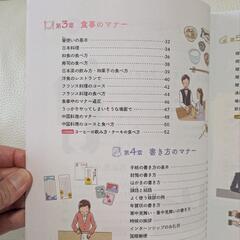 第3章 食事のマナー
箸使いの基本 32
日本料理 34
和食の食べ方 36
寿司の食べ方 38
日本茶の飲み方・和菓子の食べ方 39
洋食のレストランで 40
フランス料理のコース 42
フランス料理の食べ方 44
食事中のマナー違反 46
うっかりやってしまいそうな場面で 48
中国料理のマナー 49
中国料理のコースと食べ方 50
コーヒーの飲み方・ケーキの食べ方 52
第4章 書き方のマナー
手紙の書き方の基本
封筒の書き方
はがきの書き方
頭語と結語
よく使う敬語の例
年賀状の書き方
寒中見舞い・暑中見舞いの書き方
時候の挨拶
インターンシップのお礼状
国際郵便